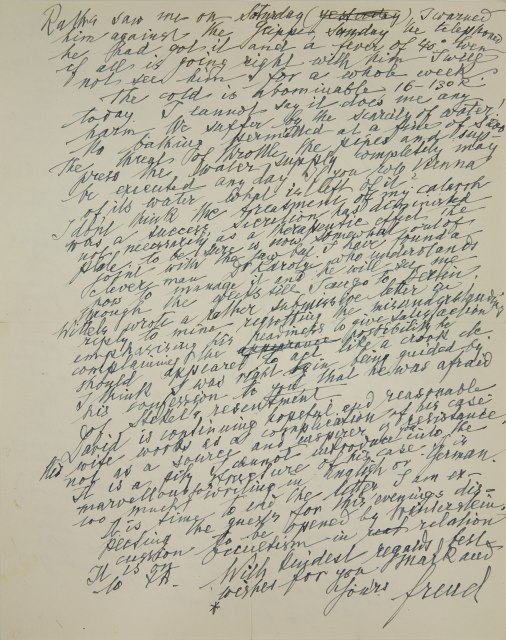 Rather saw me on Saturday (yesterday), I warned
him against the Grippe, Sunday he telephoned
he had got it and a fever of 40°. Even
if all is going right with him I will
not see him for a whole week.
The cold is abominable 16-13° R.
today. I cannot say it does me any
harm. We suffer by the scarcity of water!
No bathing permitted at a fine of S 200
The threat to throttle the pipes and sup-
press the water supply completely may
be executed any day. If you rob Vienna
of its water what is left of it?
I don't think the treatment of my catarrh
was a success, secretion has diminished
not necessarily as a therapeutic effect the
plate to be sure is now somewhat out of
joint with the jaw but I have found a
clever man Dr Karolyi who understands
how to manage it and he will see me
through the weeks till I go to Berlin.
Wittels wrote a rather submissive letter in
reply to mine, regretting the misunderstanding
emphasizing his readiness to give satisfaction
complaining the possibility he
should appeared to act like a crook etc
I think I was right again, being guided by
his confession to you that he was afraid
of Stekel's resentment
David is continuing hopeful and reasonable
His wife works as a complication of his case
not as a source and inspirer of resistance
It is a pity I cannot introduce you into the
marvellous structure of his case it is
too much writing in English or German.
It is time to end the letter I am ex-
pecting the guests for this evenings dis-
cussion to be opened by Winterstein.
It is on Occultism in relation
to ΨΑ.
With kindest regards best
wishes for you Mark and
Yours
freud